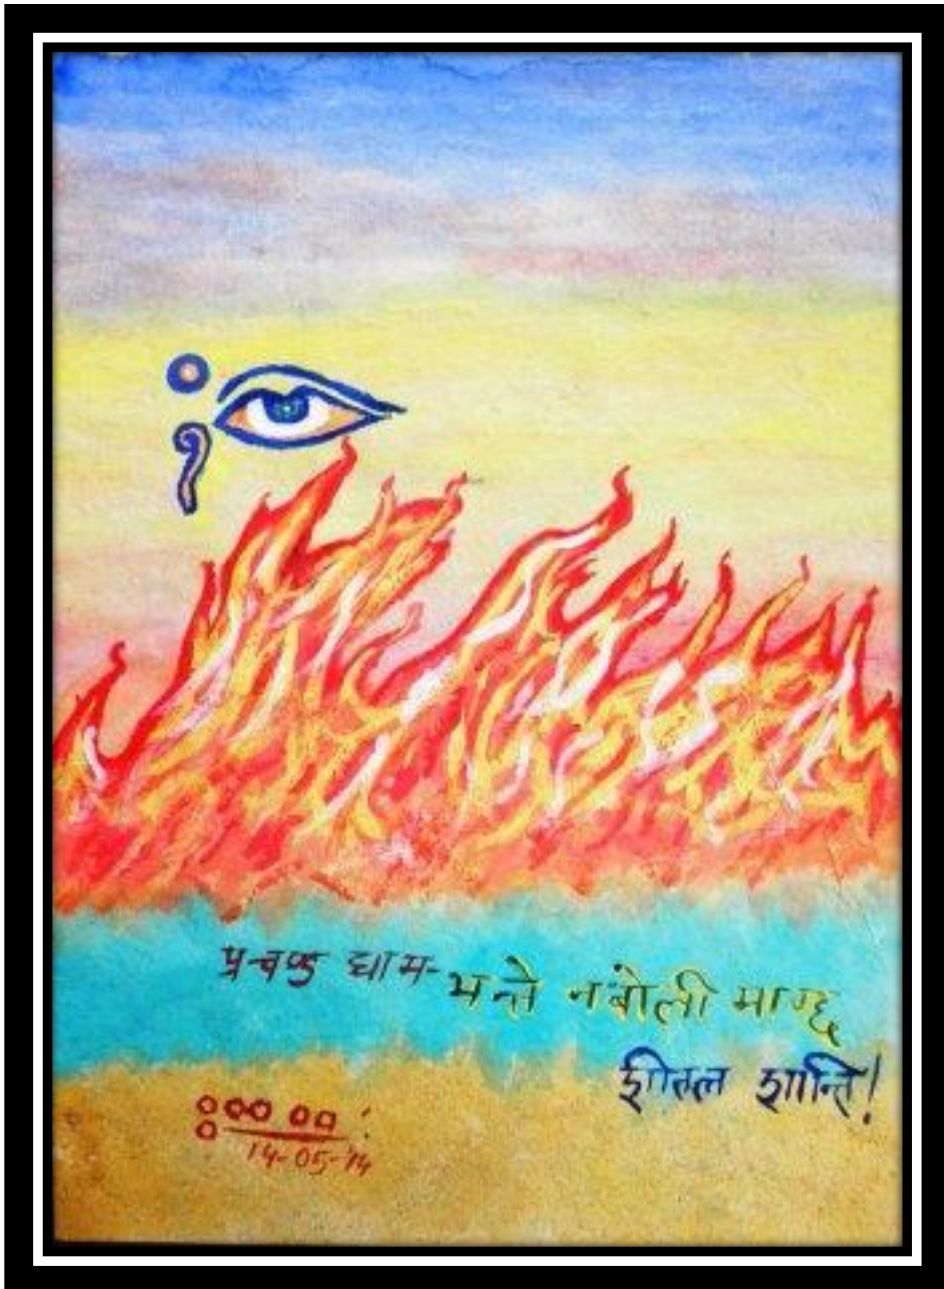 प्रचण्ड घाम-
भन्ते नबोली माग्छ
शीतल शान्ति!
14-05-14